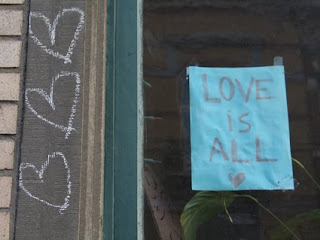 LOVE
is
ALL